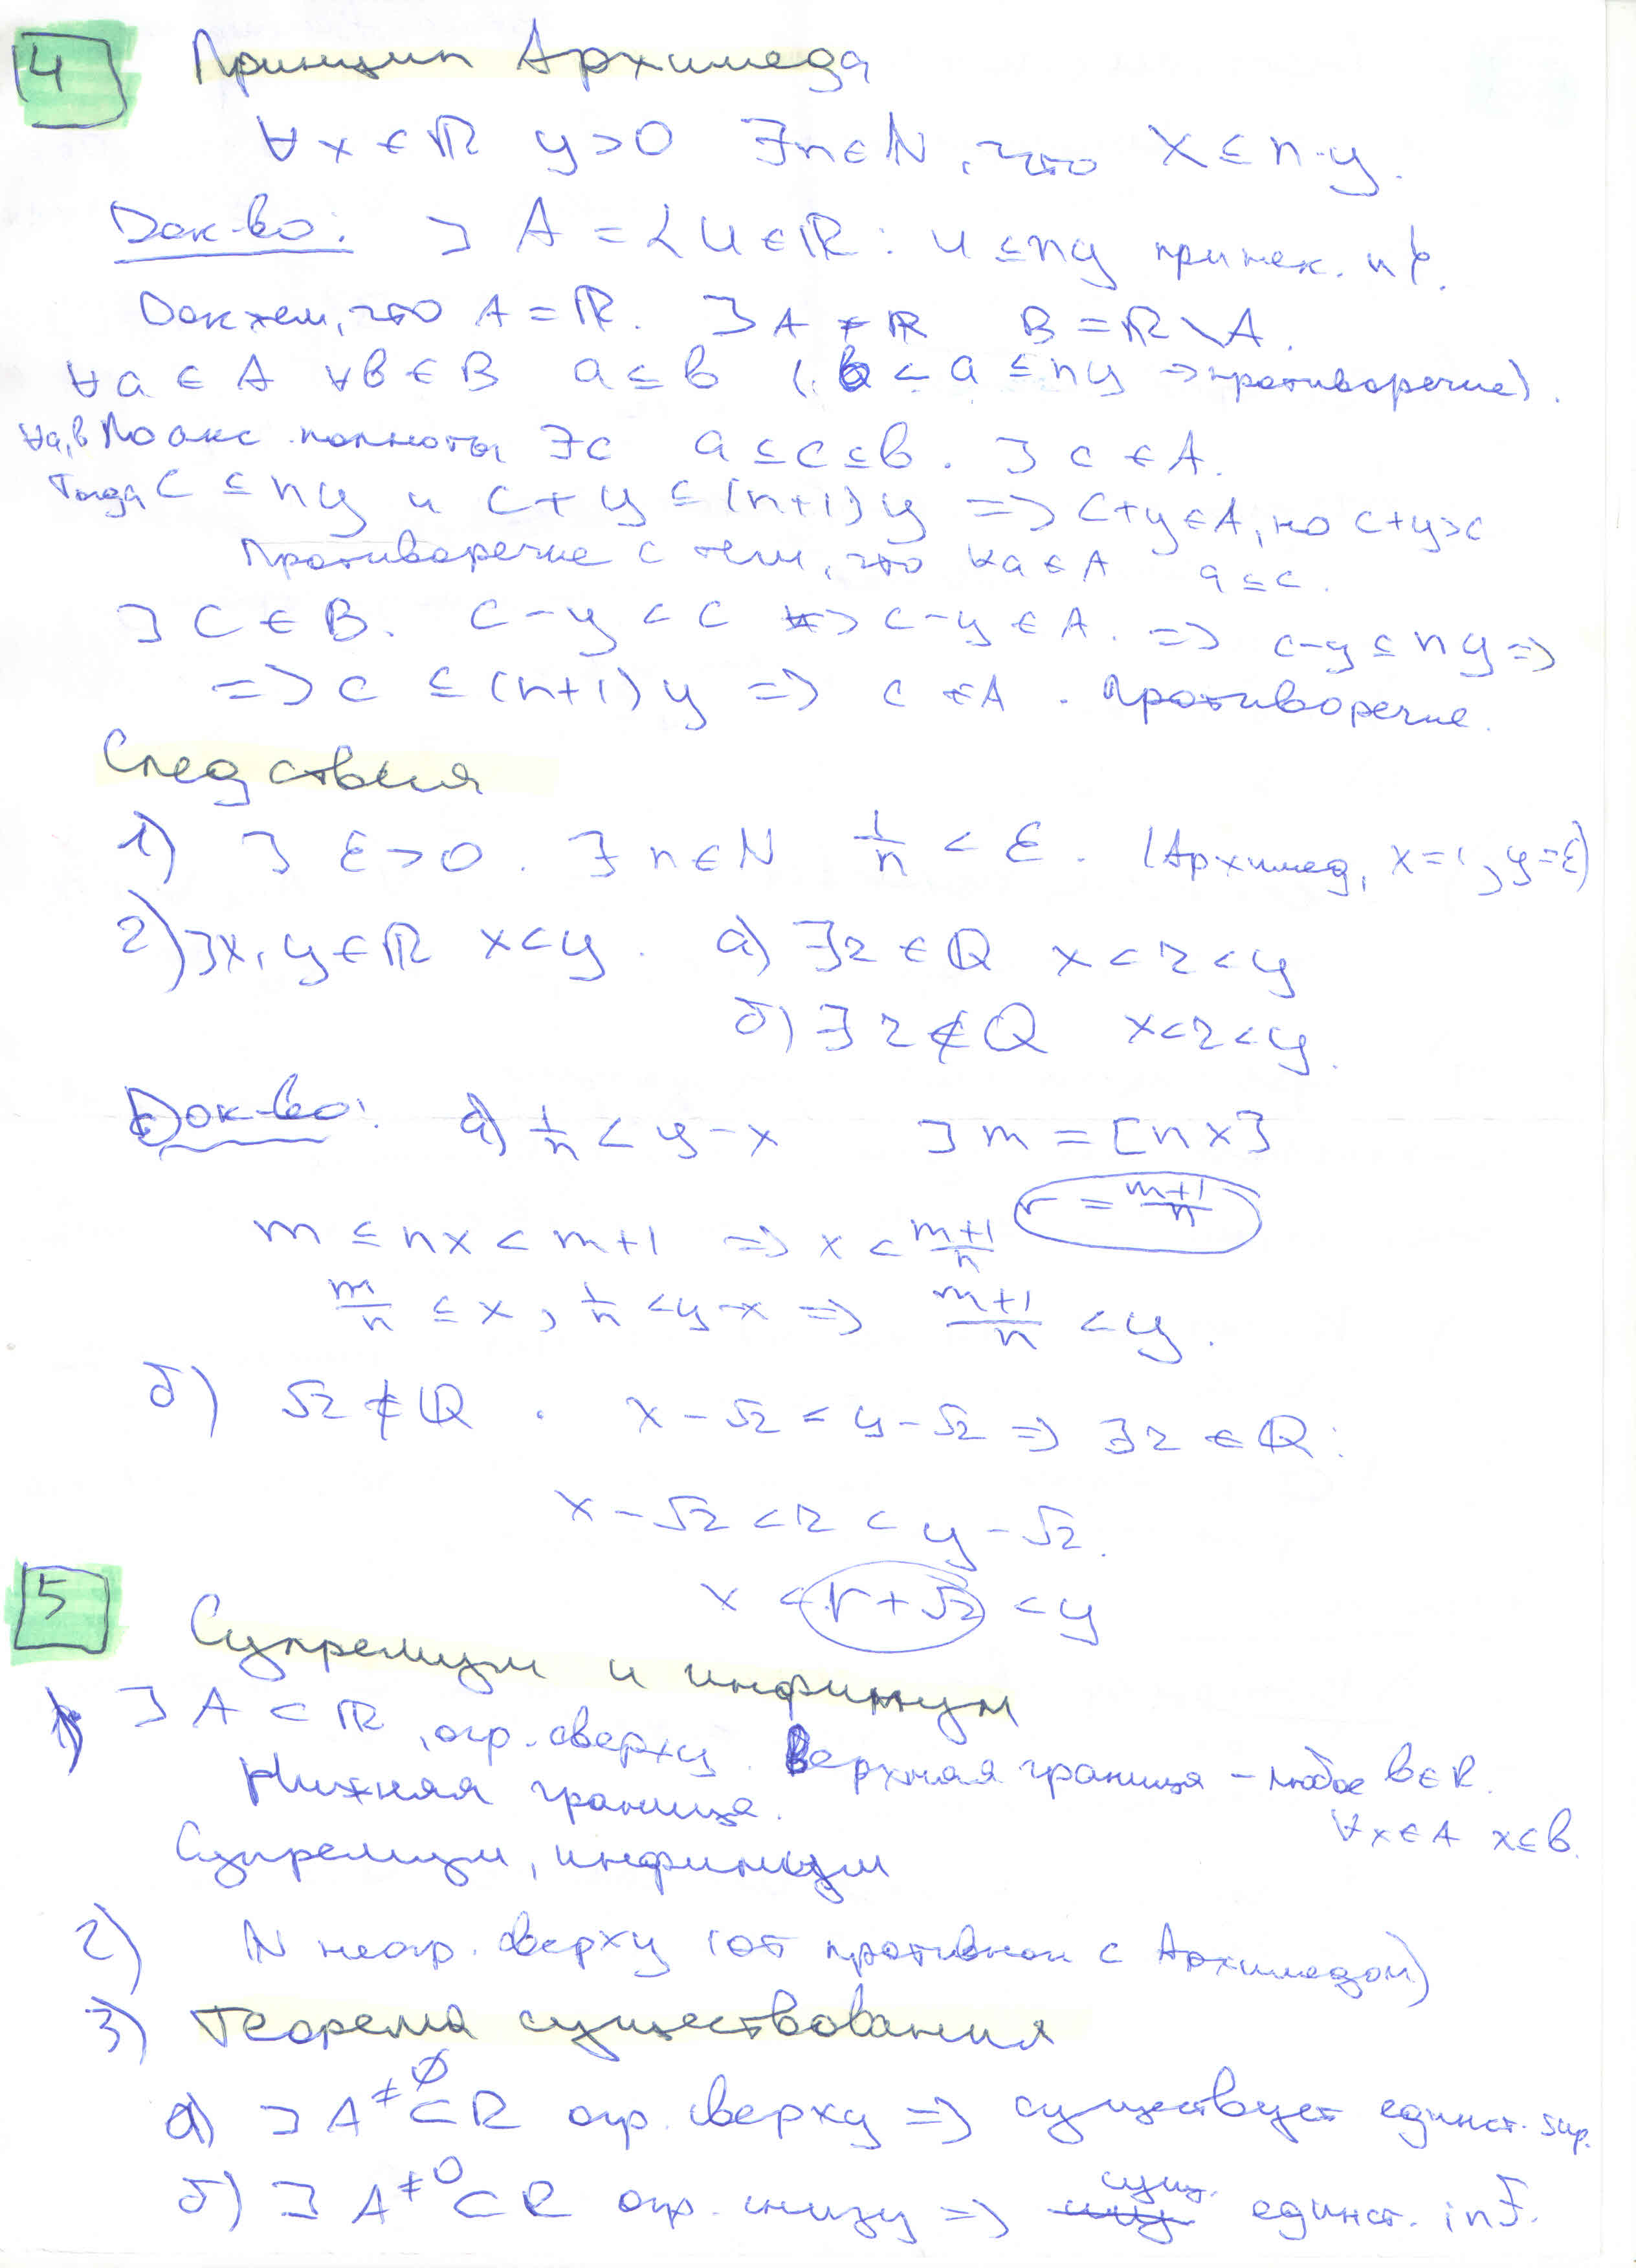 4 Принцип Архимеда
∀x ∈ ℝ y>0 ∃n∈ℕ, что x ≤ n·y.
Док-во: ] A = {u∈ℝ: u ≤ ny при нек. n}.
Докжем, что A = ℝ. ] A ≠ ℝ B = ℝ\A.
∀a ∈ A ∀b ∈ B a ≤ b (b < a ≤ ny → противоречие).
∀a,b По акс. полноты ∃c a ≤ c ≤ b. ] c ∈ A.
Тогда c ≤ ny и c+y ≤ (n+1)y => c+y∈A, но c+y>c
Противоречие с тем, что ∀a∈A a ≤ c.
] c ∈ B. c-y < c => c-y ∈ A. => c-y ≤ ny =>
=> c ≤ (n+1)y => c ∈ A. Противоречие.
Следствия
1) ] ε>0. ∃n∈ℕ 1/n < ε. (Архимед, x=1, y=ε)
2) ] x, y∈ℝ x<y. а) ∃r ∈ ℚ x<r<y
б) ∃r ∉ ℚ x<r<y.
Док-во: а) 1/n < y-x ] m = [nx]
r = m+1/n
m ≤ nx < m+1 => x < m+1/n
m/n ≤ x, 1/n < y-x => m+1/n < y.
б) √2 ∉ ℚ. x-√2 < y-√2 => ∃r ∈ ℚ:
x-√2 < r < y-√2.
x < r+√2 < y
5 Супремум и инфимум
1) ] A ⊂ ℝ, огр. сверху. Верхняя граница – любое b∈R.
∀x∈A x≤b.
Нижняя граница.
Супремум, инфимум
2) ℕ неогр. сверху (от противном с Архимедом)
3) Теорема существования
а) ] A ≠∅ ⊂ R огр. сверху => существует единст. sup.
б) ] A ≠0 ⊂ R огр. снизу => сущ. единст. inf.